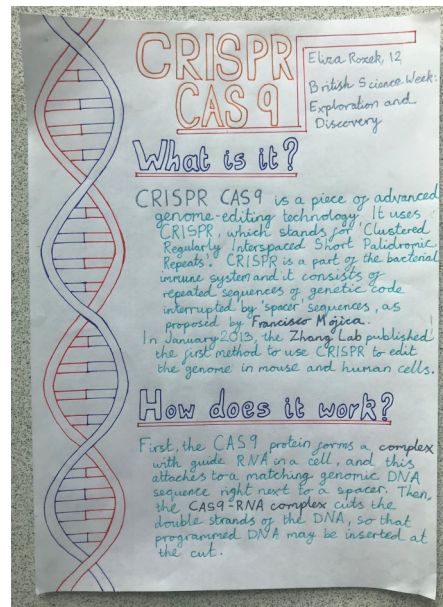 CRISPR
CAS 9
Eliza Rozek, 12
British Science Week:
Exploration and
Discovery
What is it?
CRISPR CAS9 is a piece of advanced
genome-editing technology. It uses
CRISPR, which stands for 'Clustered
Regularly Interspaced Short Palidromic
Repeats'. CRISPR is a part of the bacterial
immune system and it consists of
repeated sequences of genetic code
interrupted by 'spacer' sequences, as
proposed by Francisco Mojica.
In January 2013, the Zhang Lab published
the first method to use CRISPR to edit
the genome in mouse and human cells.
How does it work?
First, the CAS9 protein forms a complex
with guide RNA in a cell, and this
attaches to a matching genomic DNA
sequence right next to a spacer. Then,
the CAS9-RNA complex cuts the
double strands of the DNA, so that
programmed DNA may be inserted at
the cut.